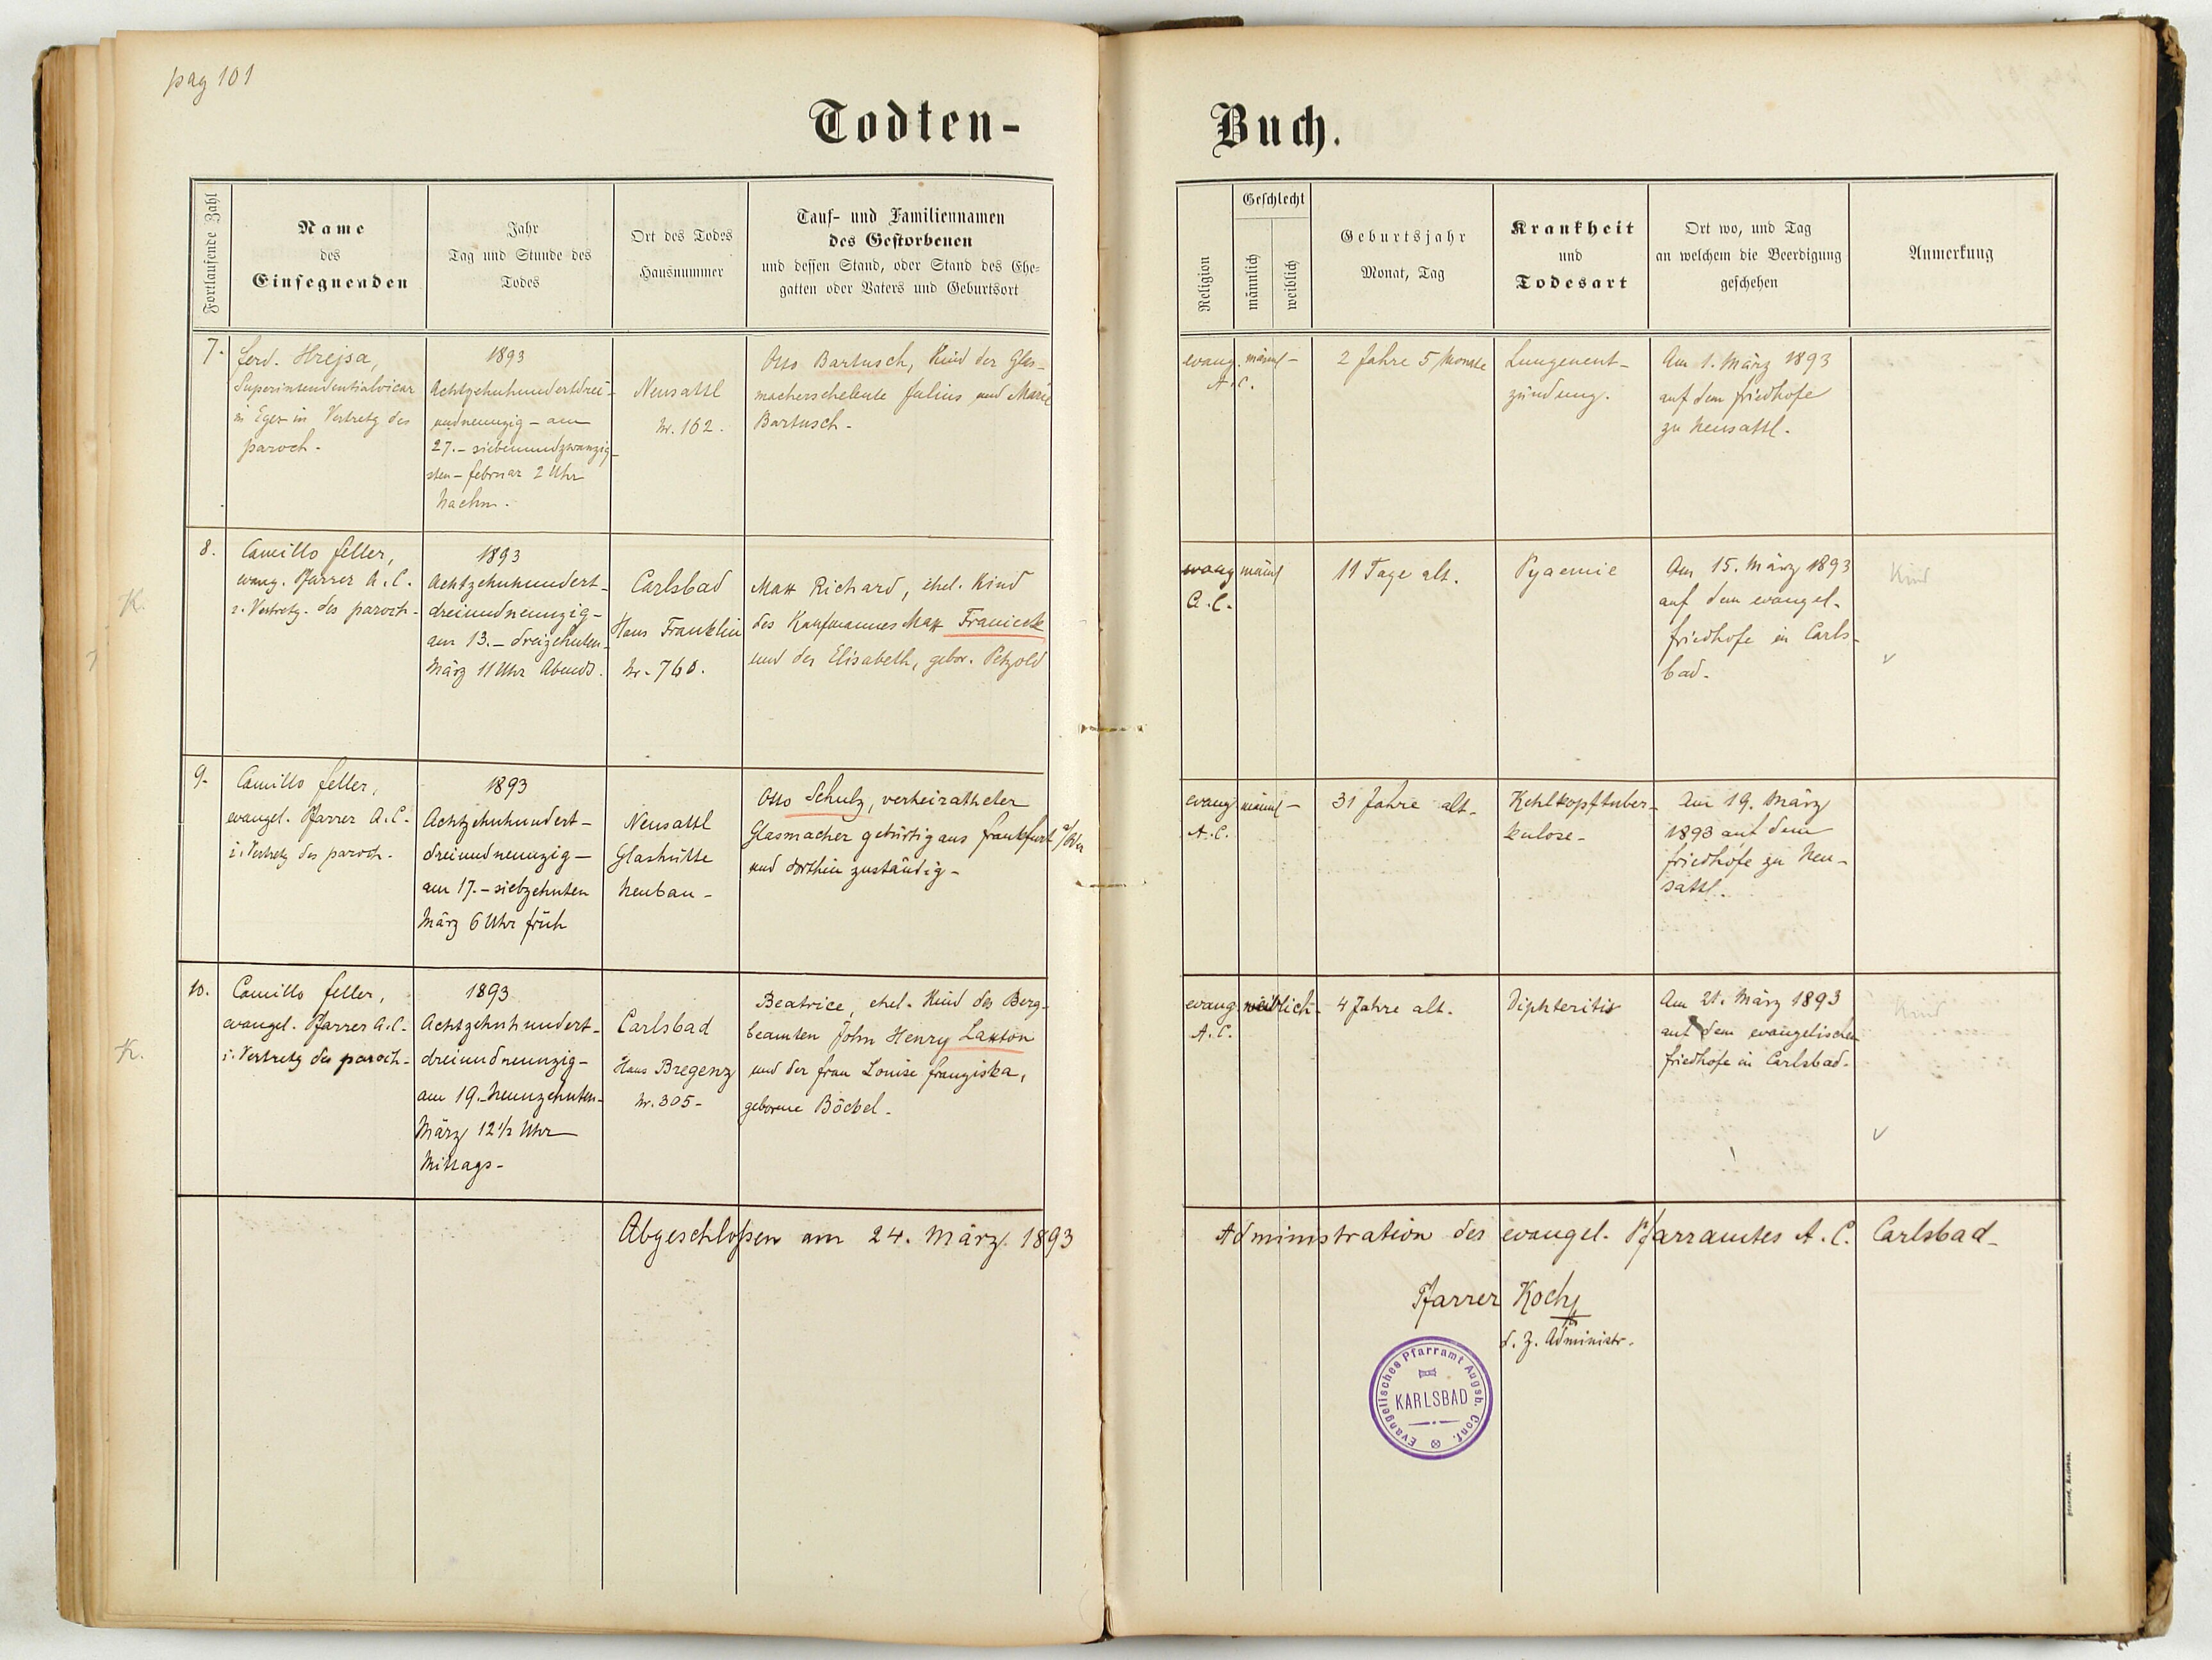 pag 101
Todten-
Buch.
Fortlaufende Zahl
Name
des
Einsegnenden
Jahr
Tag und Stunde des
Todes
Ort des Todes
Hausnummer
Tauf- und Familiennamen
des Gestorbenen
und dessen Stand, oder Stand des Ehe-
gatten oder Vaters und Geburtsort
Religion
Geschlecht
männlich
weiblich
Geburtsjahr
Monat, Tag
Krankheit
und
Todesart
Ort wo, und Tag
an welchem die Beerdigung
geschehen
Anmerkung
7.
Ferd. Hrejsa,
Superintendentialvicar
in Eger in Vertretg des
paroch.
1893
Achtzehnhundertdrei-
undneunzig - am
27. - siebenundzwanzig-
sten - Februar 2 Uhr
Nachm.
Neusattl
Nr. 162.
Otto Bartusch, Kind der Glas-
macherseheleute Julius und Marie
Bartusch.
evang. männl -
A. C.
2 Jahre 5 Monate
Lungenent-
zündung.
Am 1. März 1893
auf dem Friedhofe
zu Neusattl.
K.
8.
Camillo Feller,
evang. Pfarrer A. C.
i. Vertretg. des paroch.
1893
Achtzehnhundert-
dreiundneunzig -
am 13. - dreizehnten -
März 11 Uhr Abends.
Carlsbad
Haus Franklin
Nr. 760.
Max Richard, ehel. Kind
des Kaufmannes Max Franieck
und der Elisabeth, gebor. Petzold
evang männl
A. C.
11 Tage alt.
Pyaemie
Am 15. März 1893
auf dem evangel.
Friedhofe in Carls-
bad.
Kind
9.
Camillo Feller,
evangel. Pfarrer A. C.
i. Vertretg des paroch.
1893
Achtzehnhundert -
dreiundneunzig -
am 17. - siebzehnten
März 6 Uhr früh
Neusattl
Glashütte
Neubau -
Otto Schulz, verheiratheter
Glasmacher gebürtig aus Frankfurt a/Oder
und dorthin zuständig -
evang männl -
A. C.
31 Jahre alt.
Kehlkopftuber-
kulose -
Am 19. März
1893 auf dem
Friedhofe zu Neu-
sattl.
K.
10.
Camillo Feller,
evangel. Pfarrer A. C.
i. Vertretg des paroch.
1893
Achtzehnhundert -
dreiundneunzig -
am 19. Neunzehnten -
März 12 1/2 Uhr
Mittags -
Carlsbad
Haus Bregenz
Nr. 305 -
Beatrice, ehel. Kind des Berg-
beamten John Henry Laxton
und der Frau Louise Franziska,
geborene Böckel.
evang. weiblich -
A. C.
4 Jahre alt.
Diphteritis
Am 21. März 1893
auf dem evangelischen
Friedhofe in Carlsbad.
Kind
Abgeschloßen am 24. März 1893
Administration des evangel. Pfarramtes A. C. Carlsbad -
Pfarrer Koch
d. Z. Administr.
Evangelisches Pfarramt Augsb. Conf.
KARLSBAD